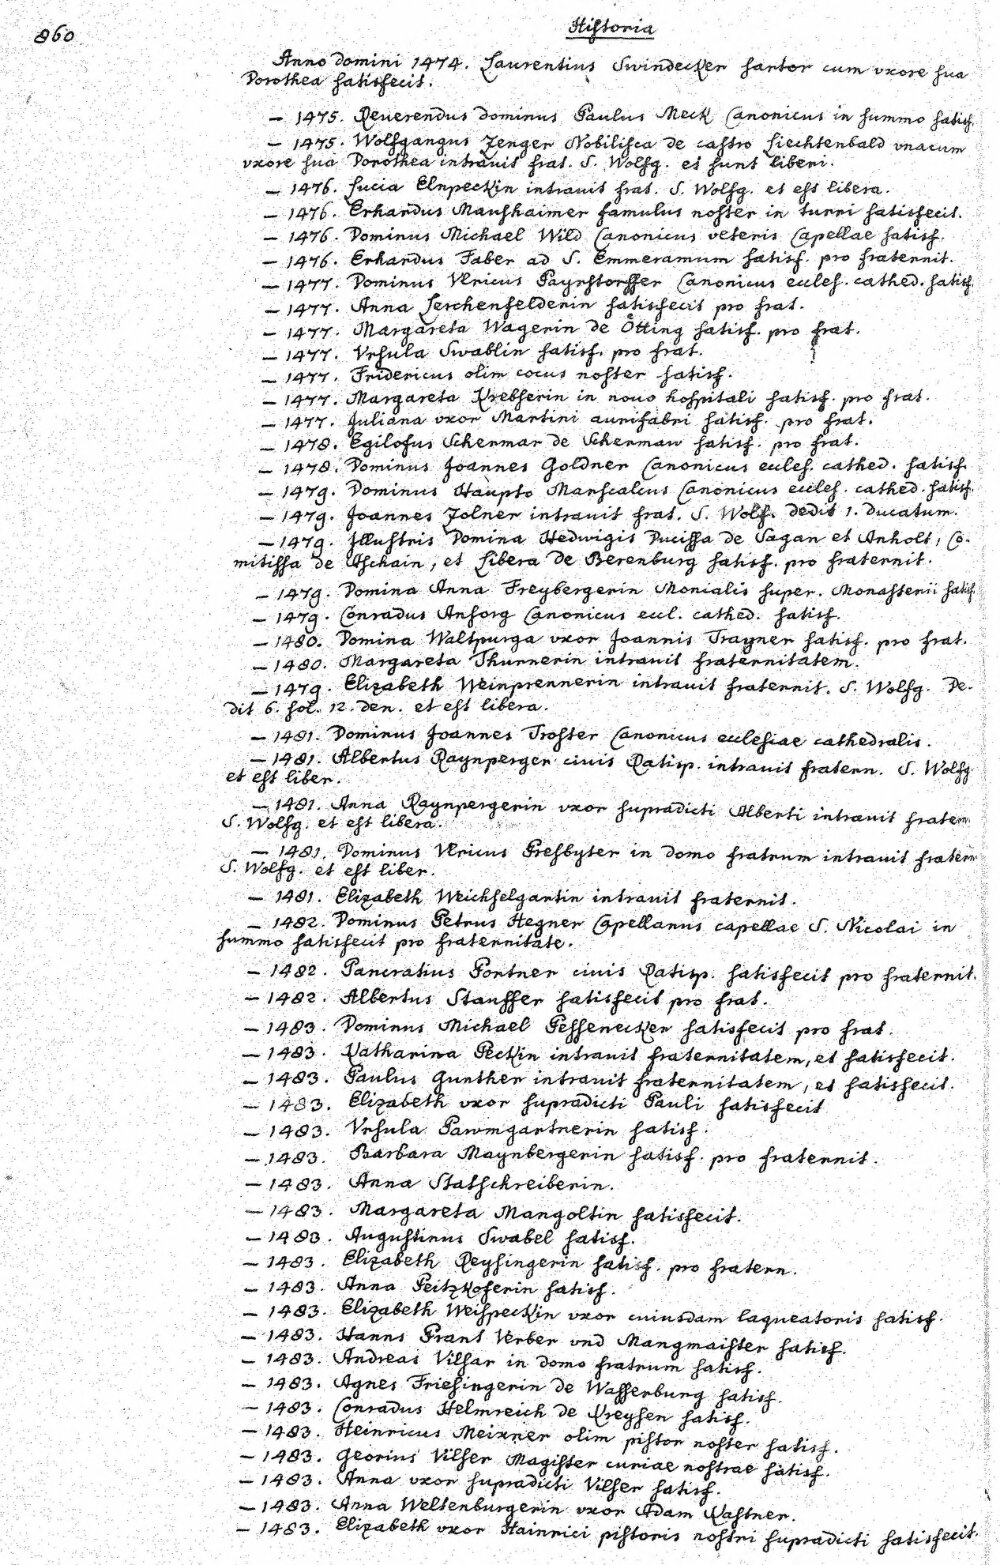 860
Historia
Anno domini 1474. Laurentius Swindecker sartor cum vxore sua
Dorothea satisfecit.
– 1475. Reuerendus dominus Paulus Meck Canonicus in summo satisf.
– 1475. Wolfgangus Zenger Nobilista de castro Liechtenbald vnacum
vxore sua Dorothea intrauit frat. S. Wolfg. et sunt liberi.
– 1476. Lucia Elnpeckin intrauit frat. S. Wolfg. et est libera.
– 1476. Erhardus Maushaimer famulus noster in turri satisfecit.
– 1476. Dominus Michael Wild Canonicus veteris Capellae satisf.
– 1476. Erhardus Faber ad S. Emmeramum satisf. pro fraternit.
– 1477. Dominus Vlricus Paynstorffer Canonicus eccles. cathed. satisf.
– 1477. Anna Lerchenfelderin satisfecit pro frat.
– 1477. Margareta Wagerin de Ötting satisf. pro frat.
– 1477. Vrsula Swablin satisf. pro frat.
– 1477. Fridericus olim cocus noster satisf.
– 1477. Margareta Krebserin in nouo hospitali satisf. pro frat.
– 1477. Juliana vxor Martini aurifabri satisf. pro frat.
– 1478. Egilofus Schermar de Schermaw satisf. pro frat.
– 1478. Dominus Joannes Goldner Canonicus eccles. cathed. satisf.
– 1479. Dominus Haupto Marscalcus Canonicus eccles. cathed. satisf.
– 1479. Joannes Zolner intrauit frat. S. Wolf. dedit 1. ducatum.
– 1479. Jllustris Domina Hedwigis Ducissa de Sagan et Anholt, Co-
mitissa de Aschain, et Libera de Berenburg satisf. pro fraternit.
– 1479. Domina Anna Freybergerin Monialis super. Monasterii satisf.
– 1479. Conradus Ansorg Canonicus eccl. cathed. satisf.
– 1480. Domina Waltpurga vxor Joannis Trayner satisf. pro frat.
– 1480. Margareta Thurnerin intrauit fraternitatem.
– 1479. Elizabeth Weinprennerin intrauit fraternit. S. Wolfg. De-
dit 6. sol. 12. den. et est libera.
– 1481. Dominus Joannes Troster Canonicus ecclesiae cathedralis.
– 1481. Albertus Raynperger ciuis Ratisp. intrauit fratern. S. Wolfg.
et est liber.
– 1481. Anna Raynpergerin vxor supradicti Alberti intrauit fratern.
S. Wolfg. et est libera.
– 1481. Dominus Vlricus Presbyter in domo fratrum intrauit fratern.
S. Wolfg. et est liber.
– 1481. Elizabeth Weichselgartin intrauit fraternit.
– 1482. Dominus Petrus Hegner Capellanus capellae S. Nicolai in
summo satisfecit pro fraternitate.
– 1482. Pancratius Portner ciuis Ratisp. satisfecit pro fraternit.
– 1482. Albertus Stauffer satisfecit pro frat.
– 1483. Dominus Michael Pessenecker satisfecit pro frat.
– 1483. Katharina Peckin intrauit fraternitatem, et satisfecit.
– 1483. Paulus Gunther intrauit fraternitatem, et satisfecit.
– 1483. Elizabeth vxor supradicti Pauli satisfecit
– 1483. Vrsula Pawmgartnerin satisf.
– 1483. Barbara Maynbergerin satisf. pro fraternit.
– 1483. Anna Statschreiberin.
– 1483. Margareta Mangoltin satisfecit.
– 1483. Augustinus Swabel satisf.
– 1483. Elizabeth Reysingerin satisf. pro fratern.
– 1483. Anna Peitzkoferin satisf.
– 1483. Elizabeth Weispeckin vxor cuiusdam laqueatoris satisf.
– 1483. Hanns Prant Verber vnd Mangmaister satisf.
– 1483. Andreas Vilsar in domo fratrum satisf.
– 1483. Agnes Friesingerin de Wasserburg satisf.
– 1483. Conradus Helmreich de Kreysen satisf.
– 1483. Heinricus Meixner olim pistor noster satisf.
– 1483. Georius Vilser Magister curiae nostrae satisf.
– 1483. Anna vxor supradicti Vilser satisf.
– 1483. Anna Weltenburgerin vxor Adam Kastner.
– 1483. Elizabeth vxor Hainrici pistoris nostri supradicti satisfecit.